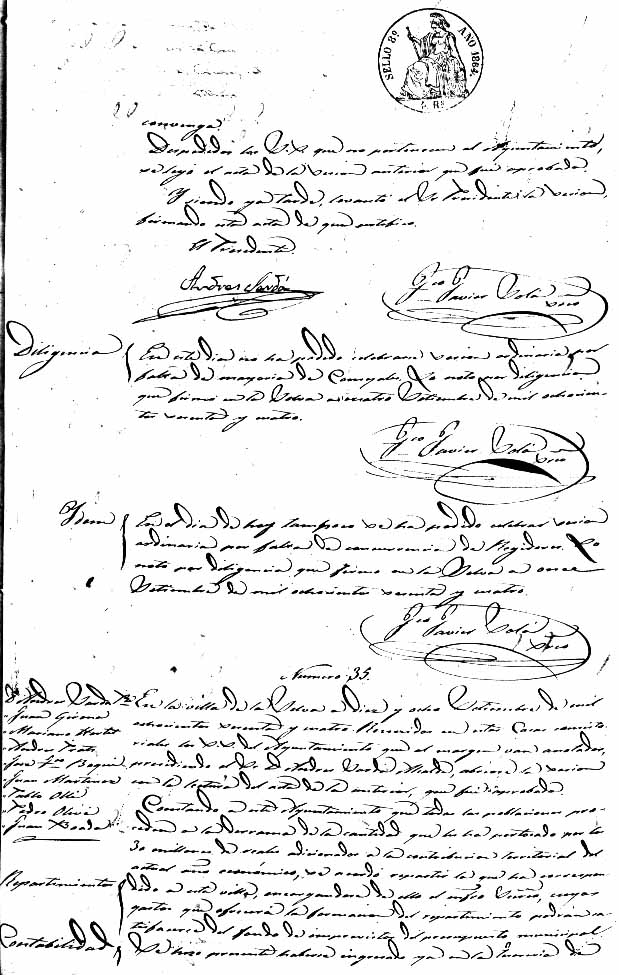 SELLO 8º AÑO 1864.
convenga.
Despedidos los S.S. que no pertenecen al Ayuntamiento,
se leyó el acta de la sesion anterior que fué aprobada.
Y siendo ya tarde, levantó el Sr Presidente la sesion,
firmando esta acta de que certifico.
El Presidente
Andres Sardá
Fco Javier Solá
Srio
Diligencia
En este dia no ha podido celebrarse sesion ordinaria por
falta de mayoria de Concejales. Lo noto por diligencia
que firmo en la Selva a cuatro Setiembre de mil ochocien-
tos sesenta y cuatro.
Fco Javier Solá
Srio
Idem
En el dia de hoy tampoco se ha podido celebrar sesion
ordinaria por falta de concurrencia de Regidores. Lo
noto por diligencia que firmo en la Selva a once
Setiembre de mil ochocientos sesenta y cuatro.
Fco Javier Solá
Srio
Numero 35.
Dn Andres Sardá Pte
Juan Girona
Mariano
Andres
José
Juan Martinez
Pablo Ollé
Pedro Olivé
Juan
En la villa de la Selva a diez y ocho Setiembre de mil
ochocientos sesenta y cuatro. Reunidos en estas Casas consisto-
riales los S.S. del Ayuntamiento que al margen van anotados,
presidiendo el Sr Dn Andres Sardá Alcalde, abriose la sesion
con la lectura del acta de la anterior, que fué aprobada.
Repartimiento
Constando a este Ayuntamiento que todas las poblaciones pro-
ceden a la derrama de la cantidad que les ha pertocado por los
30 millones de reales adicionados a la contribucion territorial del
actual año económico, se acordó repartir la que ha correspon-
dido a esta villa, encargandose de ello el infro Srio, cuyos
gastos que ofrecerá la formacion del repartimiento podrán sa-
tisfacerse del fondo de imprevistos del presupuesto municipal
Contabilidad
Se hizo presente haberse ingresado ya en la de